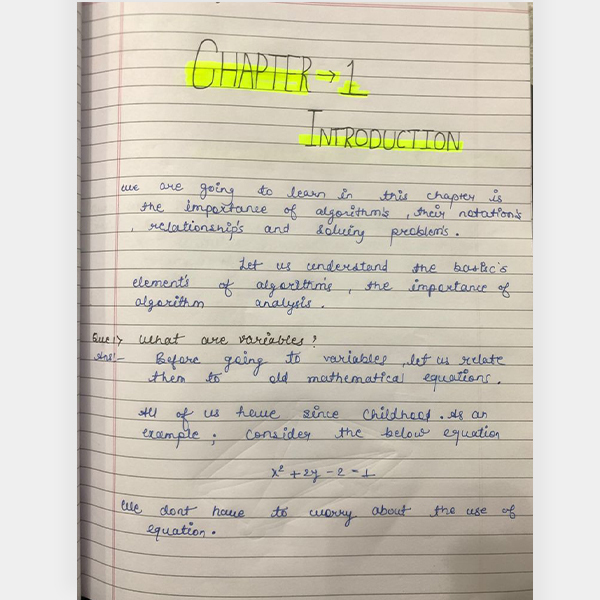 CHAPTER → 1
INTRODUCTION
We are going to learn in this chapter is
the importance of algorithm's, their notation's
, relationship's and solving problem's.
Let us understand the bastic's
element's of algorithms, the importance of
algorithm analysis.
Que:1⟩ What are variables?
Ans:- Before going to variables, let us relate
them to old mathematical equations.
All of us have since childhood. As an
example; consider the below equation
x² + 2y - 2 = 1
We dont have to worry about the use of
equation.